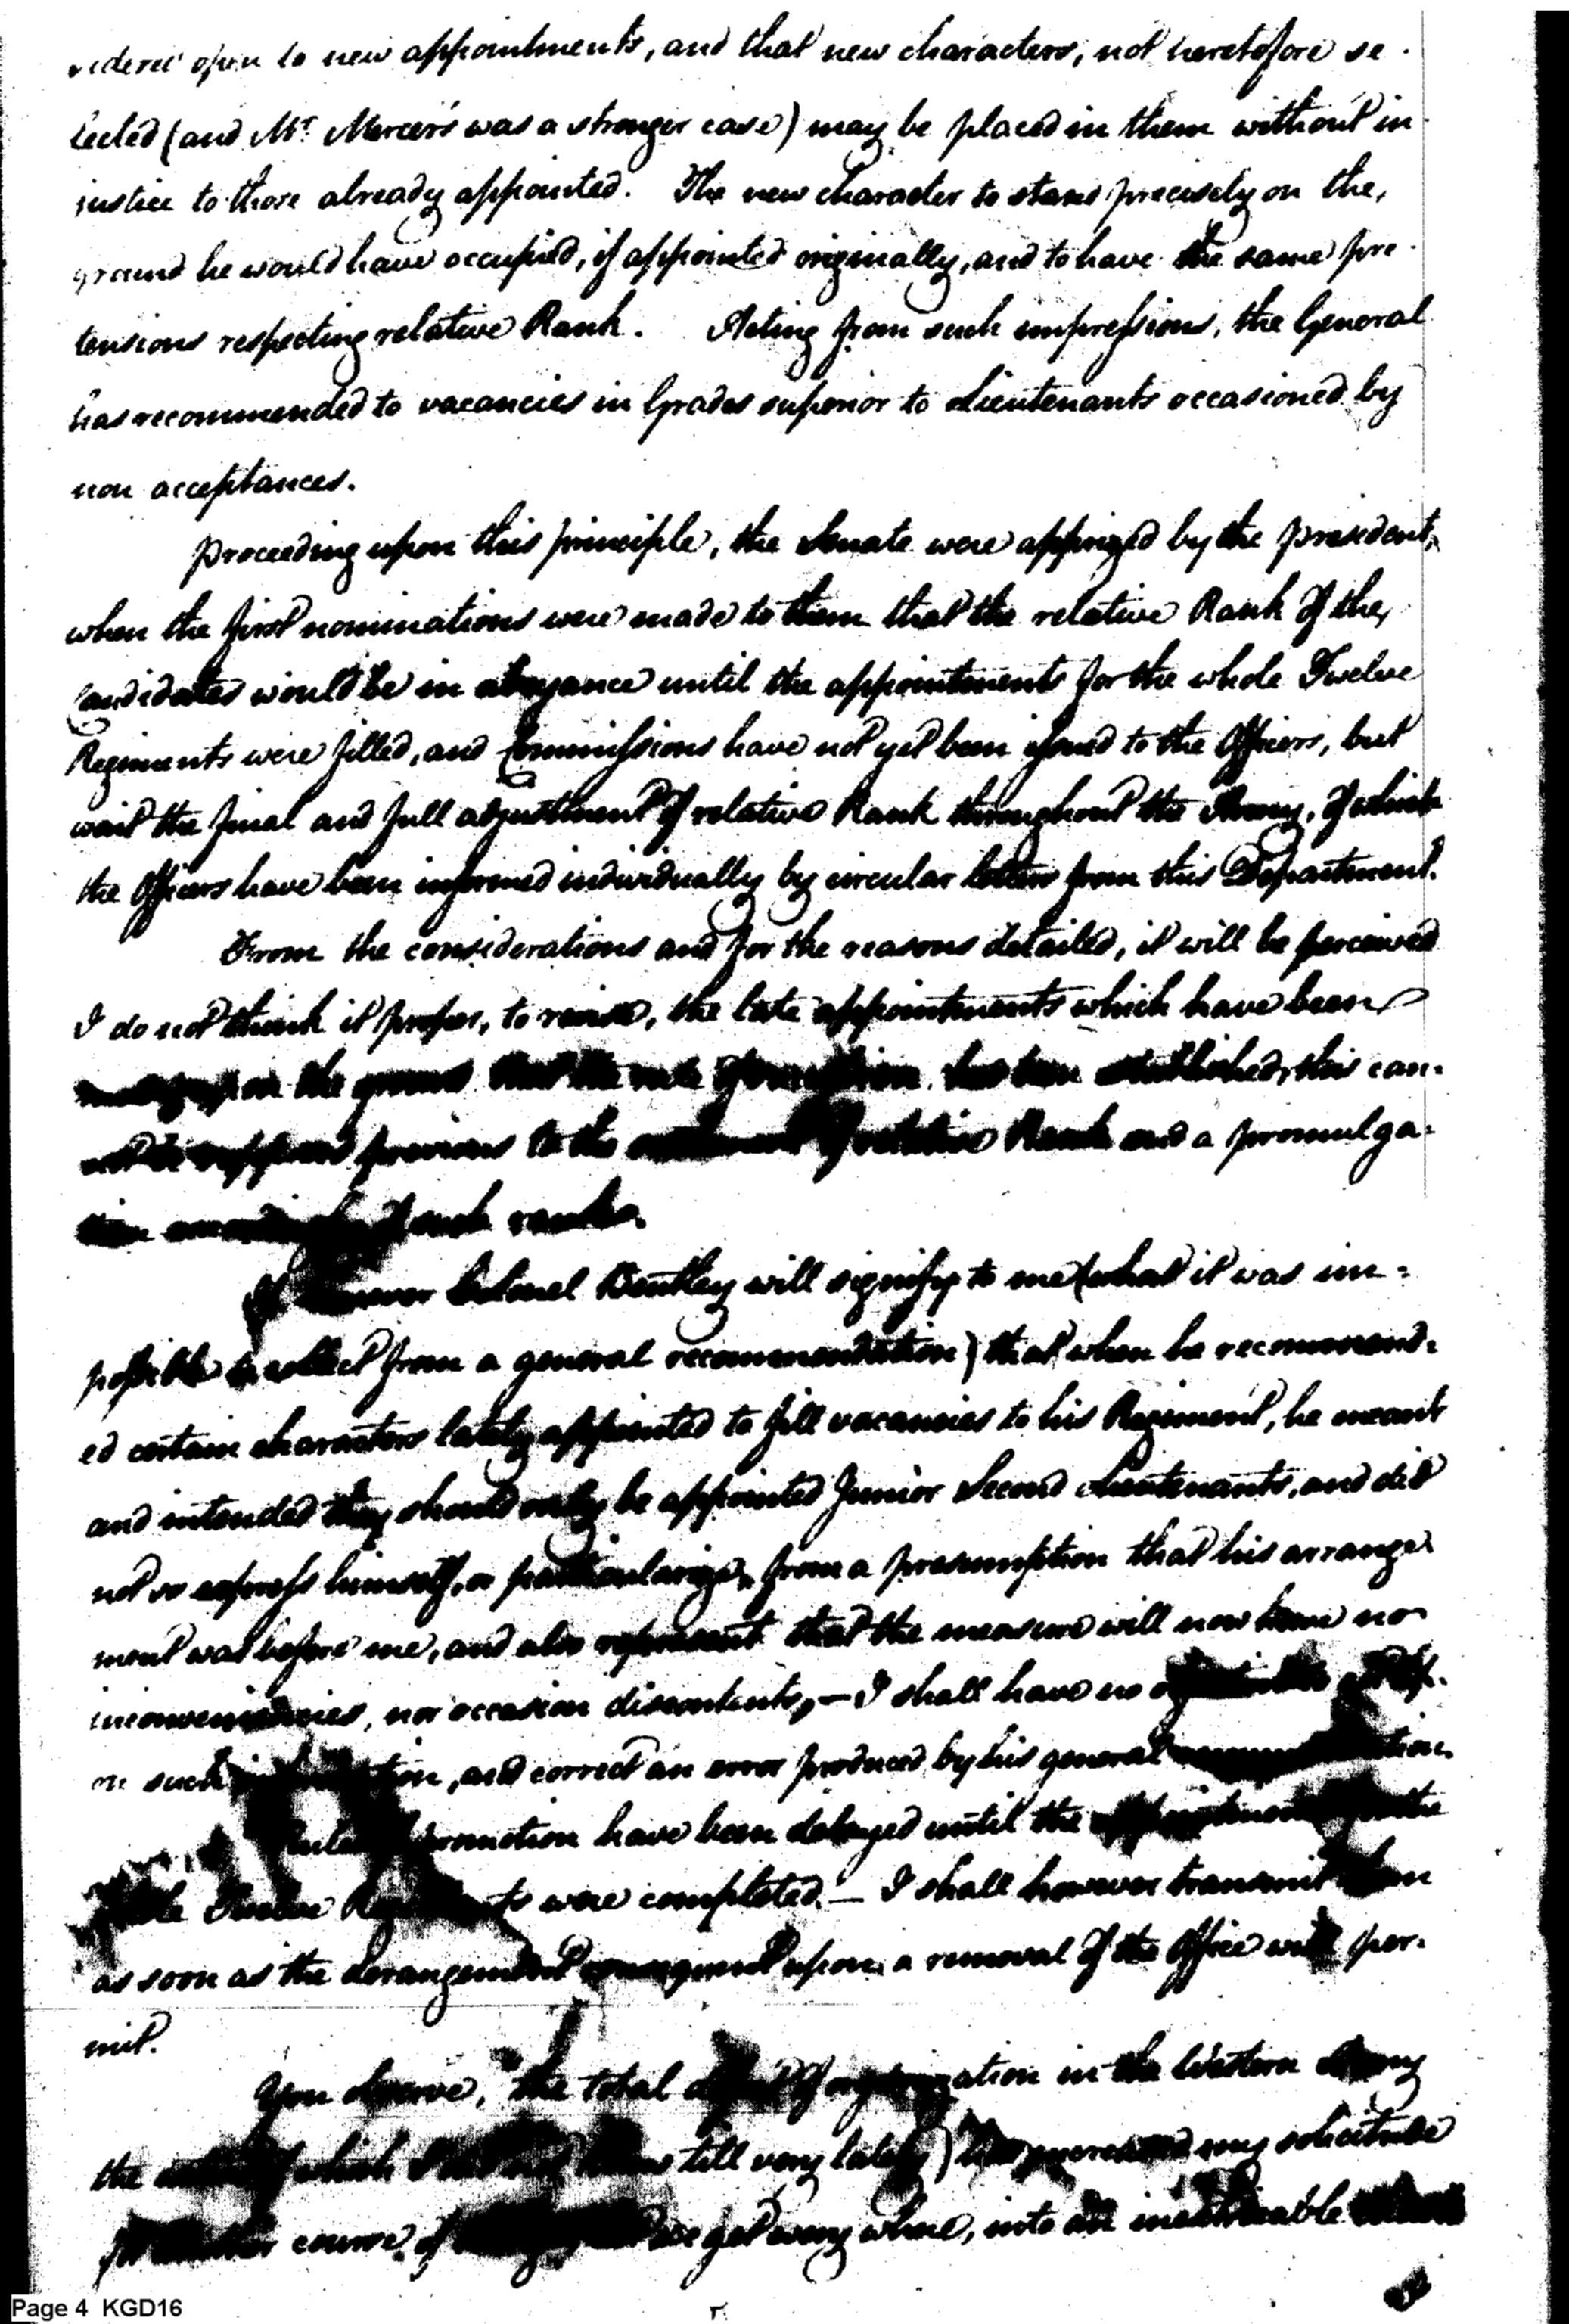 sidered open to new appointments, and that new characters, not heretofore se-
lected (and Mr. Mercer's was a stronger case) may be placed in them without in-
justice to those already appointed. The new character to stand precisely on the
ground he would have occupied, if appointed originally, and to have the same pre-
tensions respecting relative Rank. Acting from such impressions, the General
has recommended to vacancies in Grades superior to Lieutenants occasioned by
non acceptances.
Proceeding upon this principle, the Senate were apprized by the president,
when the first nominations were made to them that the relative Rank of the
Candidates would be in abeyance until the appointments for the whole Twelve
Regiments were filled, and Commissions have not yet been issued to the Officers, but
wait the final and full adjustment of relative Rank throughout the Army, of which
the Officers have been informed individually by circular letters from this Department.
From the considerations and for the reasons detailed, it will be perceived
I do not think it proper, to revise, the late appointments which have been
on the ground that the rule of promotion has been established, this can-
not be supposed previous to the settlement of relative Rank and a promulga-
tion of such ranks.
If however Colonel Bentley will signify to me (what it was im-
possible to collect from a general recommendation) that when he recommend-
ed certain characters lately appointed to fill vacancies to his Regiment, he meant
and intended they should only be appointed Junior Second Lieutenants, and did
not so express himself, or particularize, from a presumption that his arrange
ment was before me, and also represent that the measure will now have no
inconveniencies, nor occasion discontents, — I shall have no
on such , and correct an error produced by his general recommendation
Rules promotion have been delayed until the appointments the
Twelve Regiments were completed. — I shall however transmit them
as soon as the derangement consequent upon a removal of the Office will per-
mit.
You observe, the total of organization in the Western Army
the which I till very lately) has increased my solicitude
course of we get every where, into an inextricable
Page 4 KGD16